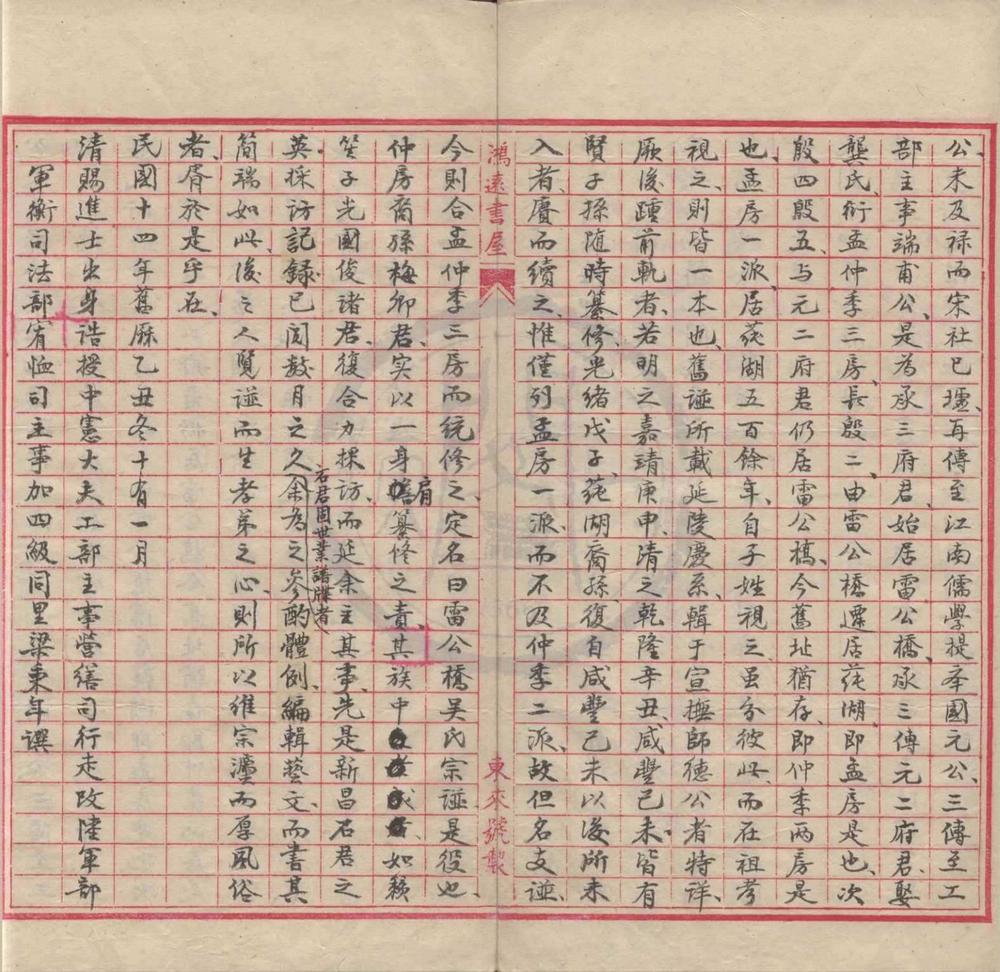 公、未及禄而宋社已墟、再傳至江南儒學提舉國元公、三傳至工
部主事端甫公、是为承三府君、始居雷公橋、承三傳元二府君、娶
龔氏、衍孟仲季三房、長殷二、由雷公橋遷居莼湖、即孟房是也、次
殷四殷五、与元二府君仍居雷公橋、今舊址猶存、即仲季兩房是
也、孟房一派、居莼湖五百餘年、自子姓視之虽分彼此、而在祖考
視之、則皆一本也、舊譜所載延陵慶系、輯于宣撫師德公者特详、
厥後踵前軌者、若明之嘉靖庚申、清之乾隆辛丑、咸豐己未、皆有
賢子孫随時纂修、光绪戊子、莼湖裔孫復自咸豐己未以後所未
入者、賡而續之、惟僅列孟房一派、而不及仲季二派、故但名支譜、
鴻遠書屋
東來號製
今則合孟仲季三房而统修之、定名曰雷公橋吴氏宗譜是役也、
仲房裔孫梅卿君、实以一身肩纂修之責、其族中如賴
笙子光國俊诸君、復合力探访、而延余主其事、先是新昌石君之
石君固世業譜牒者
英、採访記録已阅数月之久、余为之参酌體例、編輯藝文、而書其
简端如此、後之人覽譜而生孝弟之心、則所以維宗灋而厚風俗
者、胥於是乎在、
民國十四年舊厤乙丑冬十有一月
清赐進士出身诰授中憲大夫工部主事營缮司行走改陸軍部
軍衡司法部宥恤司主事加四級同里梁秉年譔